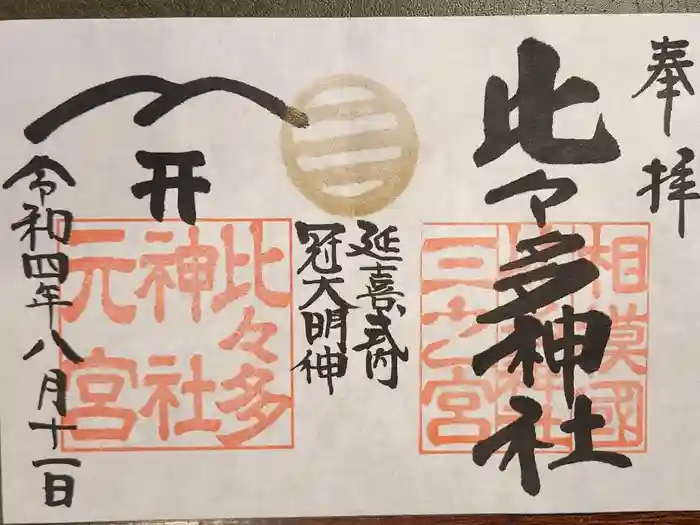 奉拝
比々多神社
相模國
三之宮
延喜式内
冠大明神
三
开
比々多
神社
元宮
令和四年八月十一日